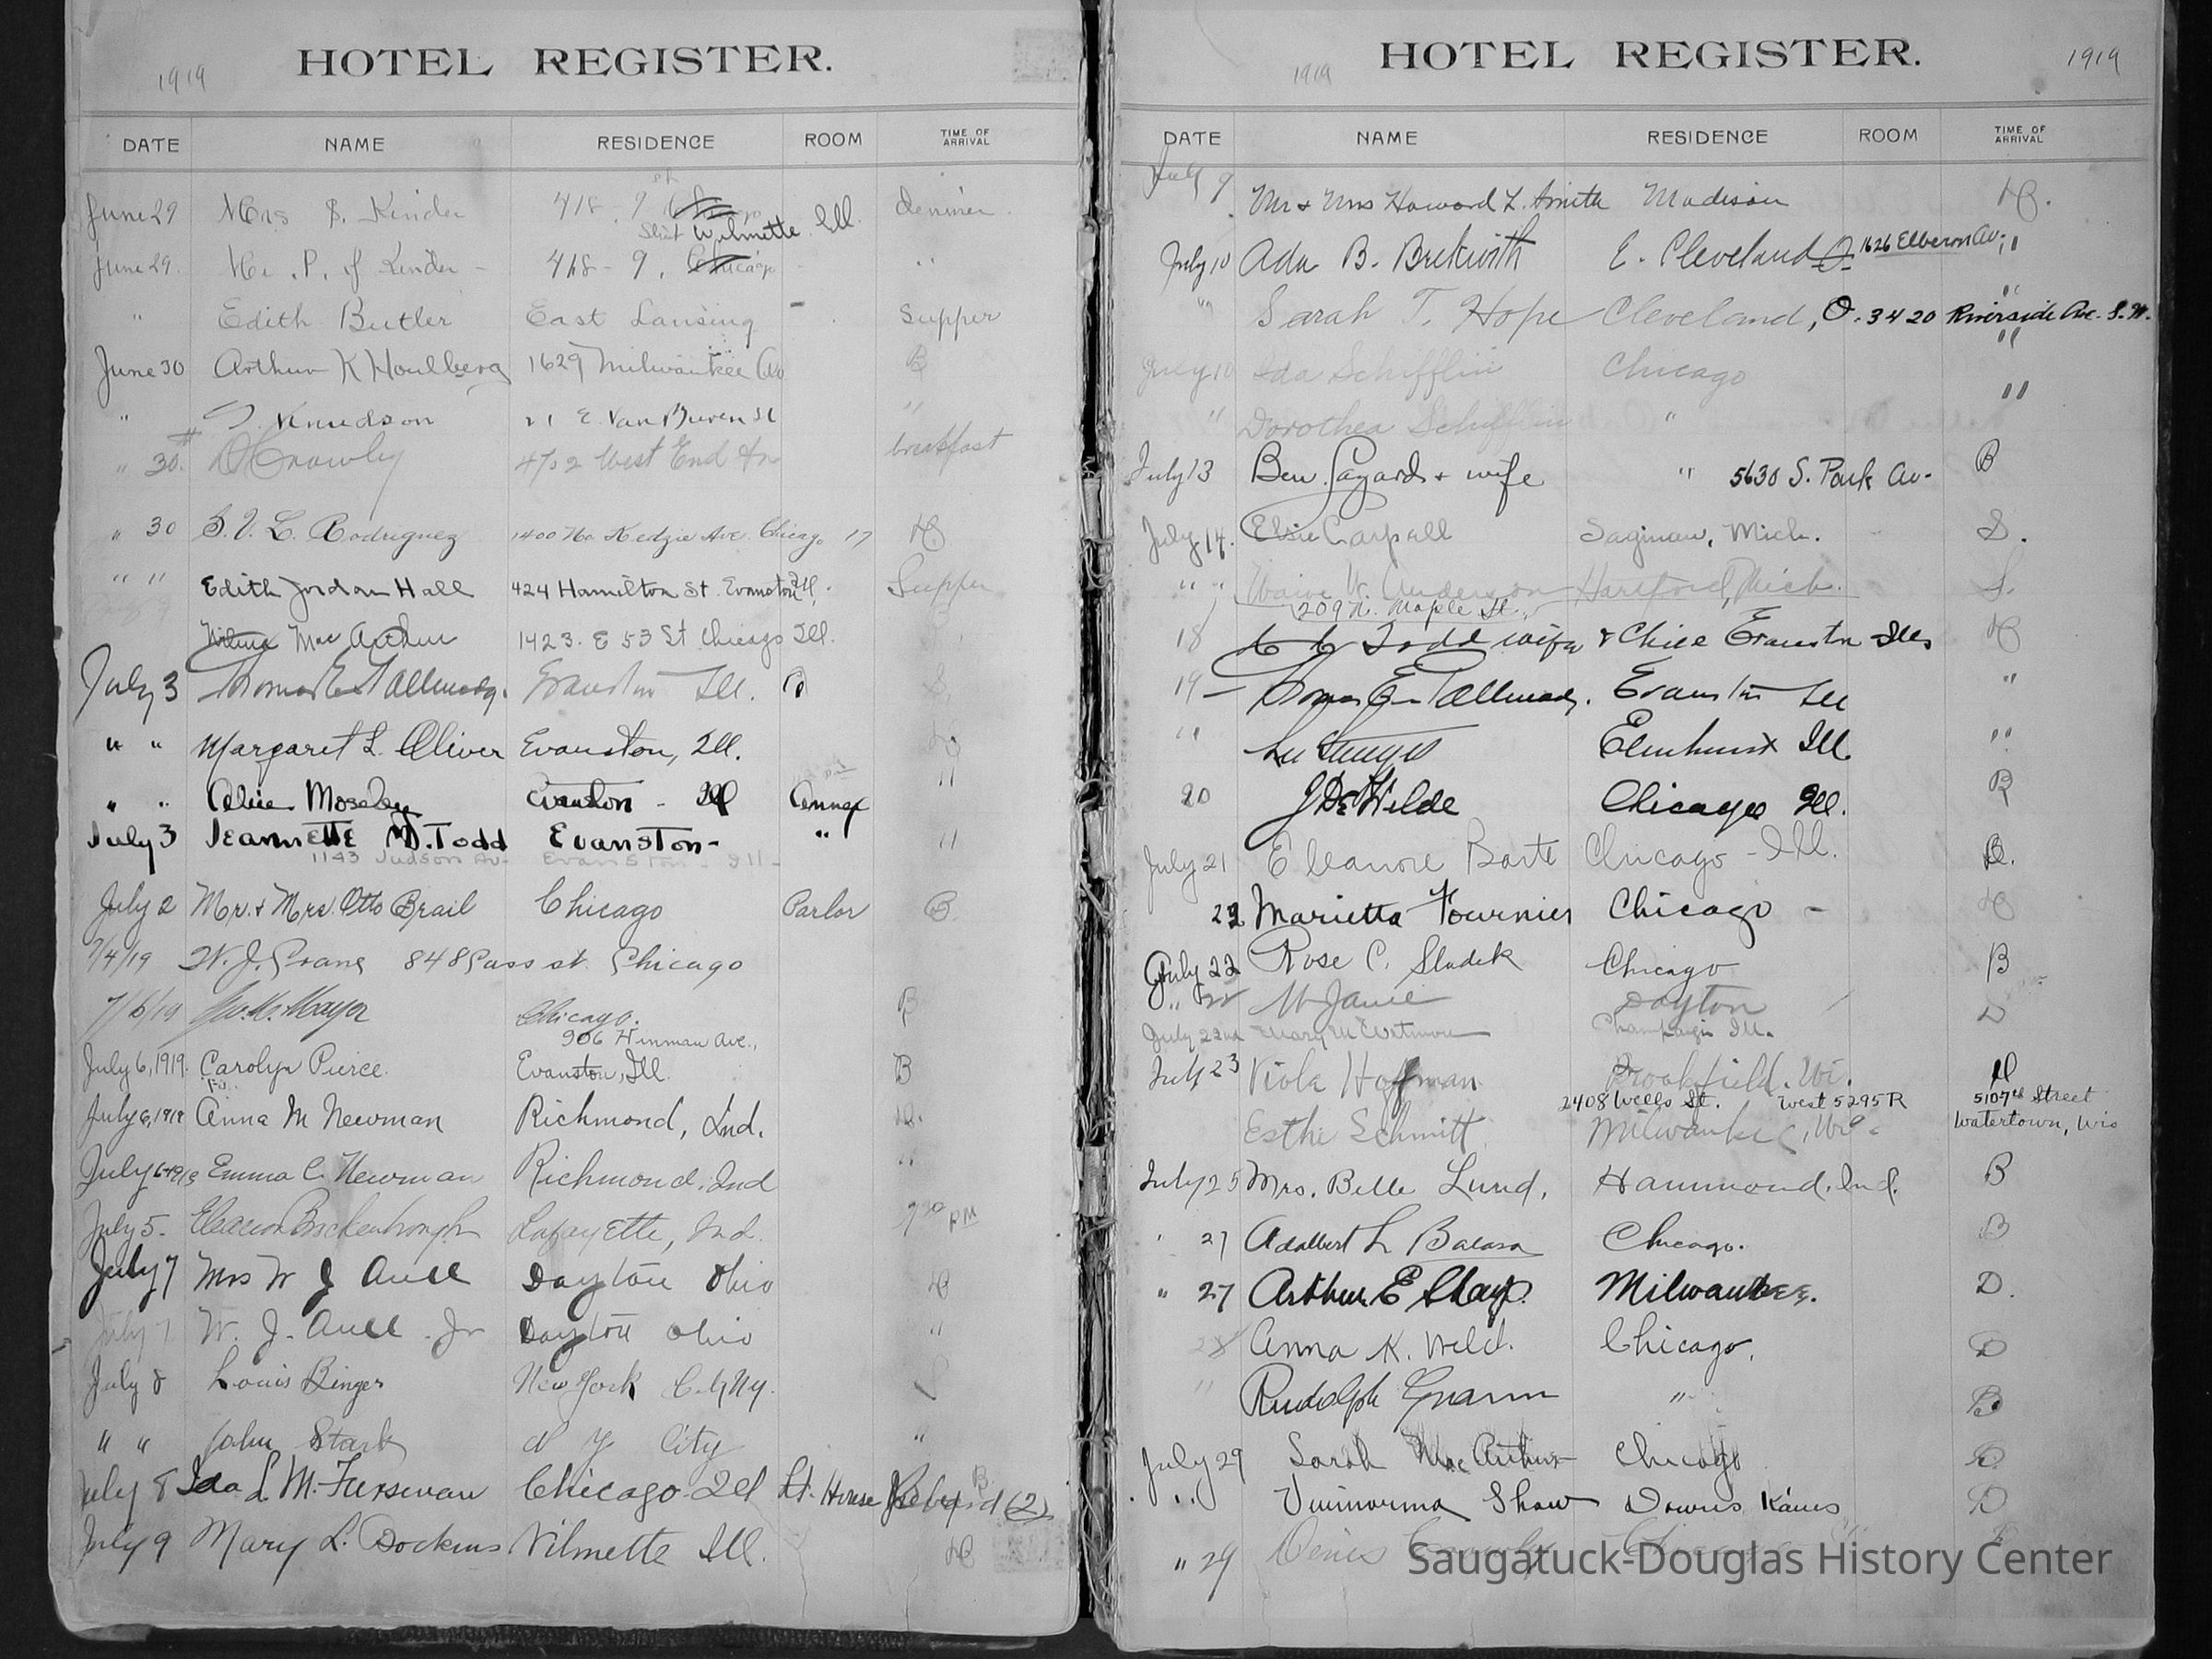 1919 HOTEL REGISTER.
DATE NAME RESIDENCE ROOM TIME OF ARRIVAL
June 29 Mrs B. Kinder 418 - 9th Ill. dinner
Wilmette
June 29. P. Kinder - 418 - 9. Chicago "
" Edith Butler East Lansing - Supper
June 30 Arthur K Houlberg 1629 Milwaukee Av B
" Knudson E. Van Buren St "
" 30. Crowley West End Av breakfast
" 30 L. Rodriguez 1400 No. Kedzie Ave. Chicago 17 D
" " Edith Jordan Hall 424 Hamilton St. Evanston Ill. Supper
Wilma Mac Arthur 1423. E 53 St Chicago Ill.
July 3 Thomas E Tallmadge. Evanston Ill. S.
" " Margaret L. Oliver Evanston, Ill.
" " Alice Moseley Evanston - Ill Annex "
July 3 Jeannette M. Todd Evanston - " "
1143 Judson Av- Evanston - Ill -
July 2 Mr. & Mrs. Otto Brail Chicago Parlor B.
7/4/19 W. J. Crane 848 Cass st. Chicago
7/6/19 Mayer Chicago. B
906 Hinman Ave.,
July 6, 1919. Carolyn Pierce Evanston, Ill. B
July 6, 1919 Anna M Newman Richmond, Ind. D.
July 6 - 1919 Emma C. Newman Richmond. Ind "
July 5. Eleanor Brockenbrough Lafayette, Ind. 7 30 PM
July 7 Mrs W J Aull Dayton Ohio D
July 7 W. J. Aull. Jr Dayton Ohio "
July 8 Louis Binger New York City Ny.
" " John Stark N Y City "
July 8 Ida L. M. Furseman Chicago Ill Lt. House B
July 9 Mary L. Dockins Wilmette Ill. D
1919 HOTEL REGISTER. 1919
DATE NAME RESIDENCE ROOM TIME OF ARRIVAL
July 9 Mr & Mrs Howard L. Smith Madison D.
July 10 Ada B. Beckwith E. Cleveland O. 1626 Elberon Av. "
" Sarah T. Hope Cleveland, O. 3420 Riverside Ave. S.W. "
July 10 Ida Schifflin Chicago "
" Dorothea Schifflin " "
July 13 Ben Gagard & wife " 5630 S. Park Av- B
July 14. Elsie Carpell Saginaw, Mich. S.
" " W. Anderson Hartford, Mich. S.
209 N. Maple St.
18 Todd wife & Chice Evanston Ills D
19 - Thomas E Tallmadge. Evanston Ill "
" Elmhurst Ill. "
20 J De Wilde Chicago Ill. B
July 21 Eleanore Barte Chicago - Ill. B.
22 Marietta Fournier Chicago - D
July 22 Rose C. Sladek Chicago B
" 22 M Janie Dayton D
July 22nd Mary M Wetmore Champaign Ill.
July 23 Viola Hoffman Brookfield. Wi. D
2408 Wells St. West 5295R 510 7th Street
Esther Schmitt Milwaukee, Wis. Watertown, Wis
July 25 Mrs. Belle Lund. Hammond, Ind. B
" 27 Adalbert L Chicago. B
" 27 Arthur E Milwaukee. D.
28 Anna K. Weld. Chicago. D
" Rudolph Gramm " B
July 29 Sarah MacArthur Chicago
" Vuinorma Shaw Downs Kans D
" 29 Denis Crowley Chicago
Saugatuck-Douglas History Center